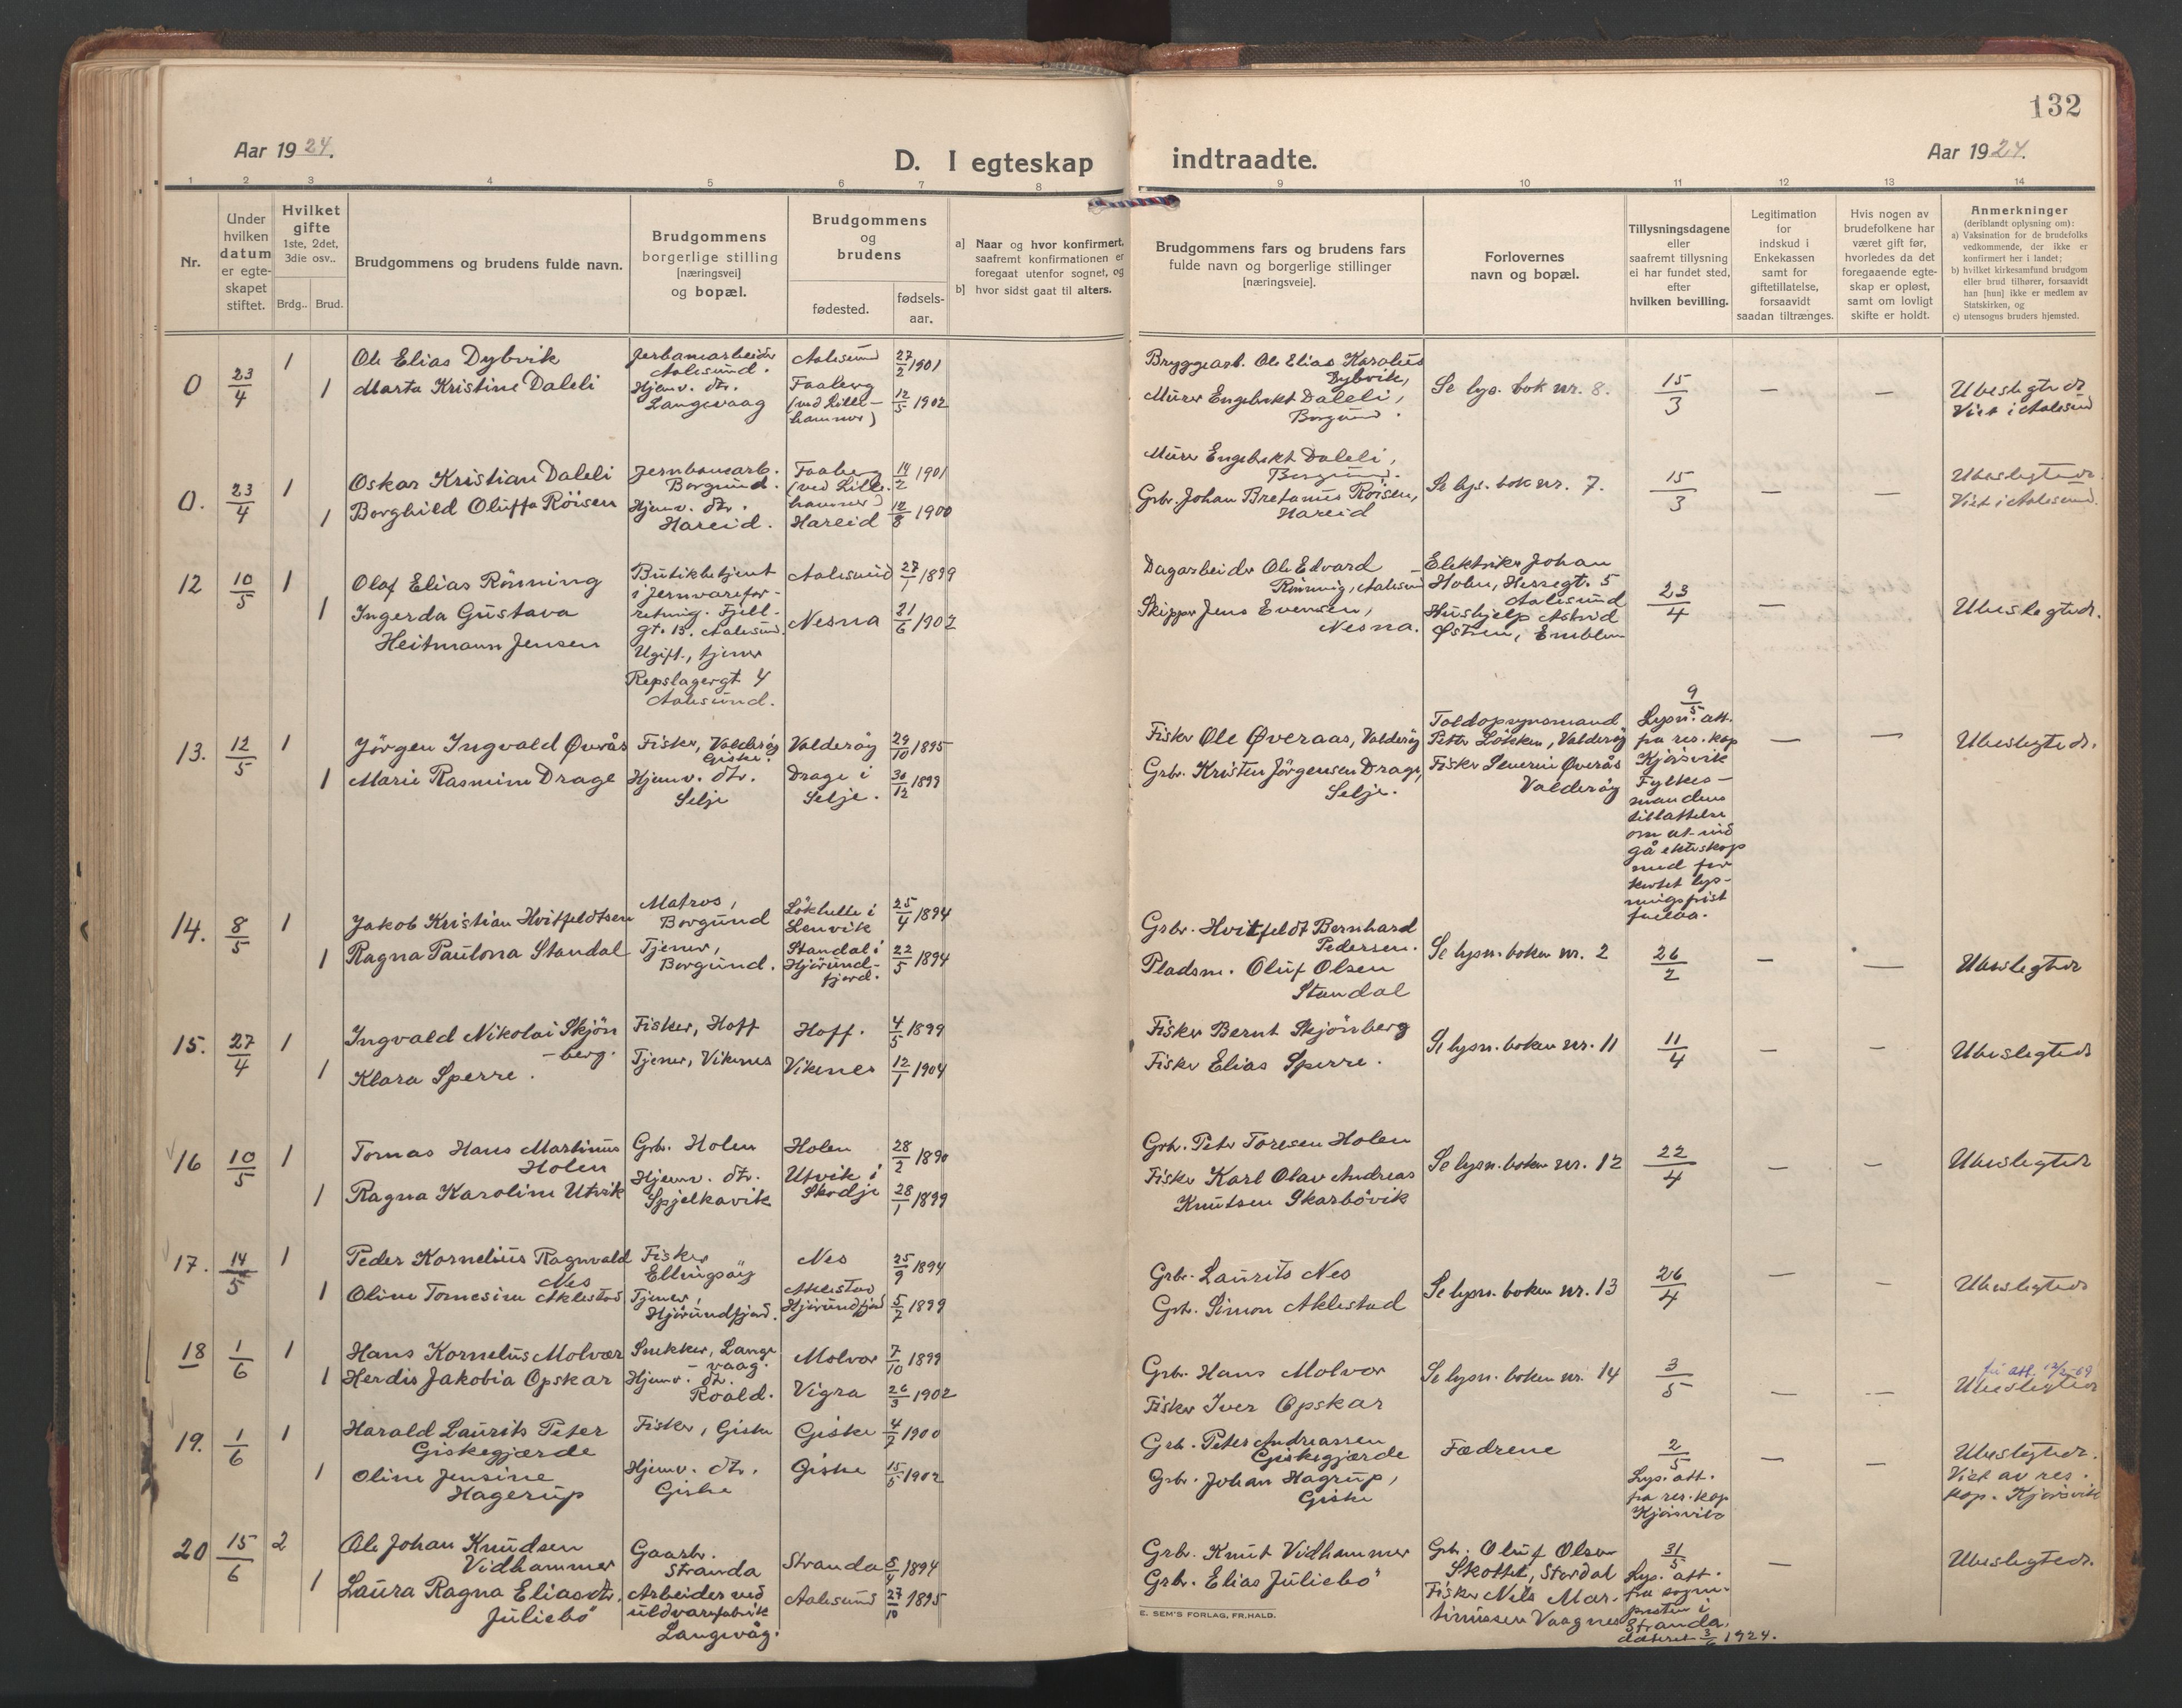 132
Aar 1924.
D. I egteskap indtraadte.
Aar 1924.
1 2 3 4 5 6 7 8 9 10 11 12 13 14
Nr.
Under hvilken datum er egteskapet stiftet.
Hvilket gifte
1ste, 2det, 3die osv..
Brdg.. Brud.
Brudgommens og brudens fulde navn.
Brudgommens borgerlige stilling [næringsvei] og bopæl.
Brudgommens og brudens
fødested.
fødsels-aar.
a] Naar og hvor konfirmert, saafremt konfirmationen er foregaat utenfor sognet, og
b] hvor sidst gaat til alters.
Brudgommens fars og brudens fars fulde navn og borgerlige stillinger [næringsveie].
Forlovernes navn og bopæl.
Tillysningsdagene eller saafremt tillysning ei har fundet sted, efter hvilken bevilling.
Legitimation for indskud i Enkekassen samt for giftetillatelse, forsaavidt saadan tiltrænges.
Hvis nogen av brudefolkene har været gift før, hvorledes da det foregaaende egteskap er opløst, samt om lovligt skifte er holdt.
Anmerkninger
(deriblandt oplysning om):
a) Vaksination for de brudefolks vedkommende, der ikke er konfirmert her i landet;
b) hvilket kirkesamfund brudgom eller brud tilhører, forsaavidt han [hun] ikke er medlem av Statskirken, og
c) utensogns bruders hjemsted.
0 23/4 1 Ole Elias Dybvik
Jerbanearbeider Aalesund.
Aalesund 27/2 1901
Bryggearb. Ole Elias Karolius Dybvik,
1 Marta Kristine Daleli
Hjemv. dtr. Langevaag
Faaberg (ved Lillehammer) 12/5 1902
Murer Engebrekt Daleli, Borgund.
Se lys. bok nr. 8.
15/3 — —
Ubeslegtede
Viet i Aalesund
0. 23/4 1 Oskar Kristian Daleli
Jernbanearb. Borgund.
Faaberg (ved Lillehammer) 14/2 1901
Murer Engebrekt Daleli, Borgund.
1 Borghild Oluffa Röisen
Hjemv. dtr. Hareid.
Hareid 12/8 1900
Grbr. Johan Bretanus Röisen, Hareid
Se lys. bok nr. 7.
15/3 — —
Ubeslegtede.
Viet i Aalesund.
12 10/5 1 Olaf Elias Rönning
Butikbetjent i jernvareforretning. Fjellgt. 13. Aalesund.
Aalesund 27/1 1899
Dagarbeider Ole Edvard Rönning, Aalesund
1 Ingerda Gustava Heitmann Jensen
Ugift, tjener Repslagergt 4 Aalesund.
Nesna 21/6 1902
Skipper Jens Evensen, Nesna.
Elektriker Johan Holm, Hessegt. 5 Aalesund
Hushjelp Astrid Østrem, Emblem
23/4 —
Ubeslegtede.
13. 12/5 1 Jörgen Ingvald Øverås
Fisker, Valderöy Giske.
Valderöy 29/10 1895
Fisker Ole Øveraas, Valderöy
1 Marie Rasmine Drage
Hjemv. dtr. Selje
Drage i Selje. 30/12 1899
Grbr. Kristen Jörgensen Drage, Selje.
Toldopsynsmand Peter Lökken, Valderöy
Fisker Severin Øverås Valderöy
9/5 Lysn. att. fra res. kap Kjörsvik
Fylkesmandens tillattelse om at indgå ekteskap med forkortet lysningsfrist
— —
Ubeslegtede.
14. 8/5 1 Jakob Kristian Hvitfeldtsen
Matros, Borgund
Lökhelle i Lenvik 25/4 1894
Grbr. Hvitfeldt Bernhard Pedersen.
1 Ragna Paulona Standal
Tjener, Borgund.
Standal i Hjörundfjord. 22/5 1894
Pladsm. Oluf Olsen Standal
Se lysn. boken nr. 2
26/2 — —
Ubeslegtede
15. 27/4 1 Ingvald Nikolai Skjönberg.
Fisker, Hoff
Hoff. 4/5 1899
Fisker Bernt Skjönberg
1 Klara Sperre.
Tjener, Vikenes
Vikenes 12/1 1904
Fisker Elias Sperre.
Se lysn. boken nr. 11
11/4 — —
Ubeslegtede
16 10/5 1 Tomas Hans Martinus Holen
Grbr. Holen
Holen 28/2 1890
Grbr. Peter Toresen Holen
1 Ragna Karoline Utvik
Hjemv. dtr. Spjelkavik
Utvik i Skodje 28/1 1899
Fisker Karl Olav Andreas Knutsen Skarbövik
Se lysn. boken nr. 12
22/4 — —
Ubeslegtede
17. 14/5 1 Peder Kornelius Ragnvald Nes
Fisker Ellingsöy
Nes 25/9 1894
Grbr. Laurits Nes
1 Oline Tomesine Aklestad
Tjener, Hjörundfjord.
Aklestad Hjörundfjord 5/7 1899
Grbr. Simon Aklestad
Se lysn. boken nr. 13
26/4 — —
Ubeslegtede
18 1/6 1 Hans Kornelius Molvær
Snekker, Langevaag.
Molvær 7/10 1899
Grbr. Hans Molvær
1 Herdis Jakobia Opskar
Hjemv. dtr. Roald.
Vigra 26/3 1902
Fisker Iver Opskar
Se lysn. boken nr. 14
3/5 — —
Ubeslegtede
19. 1/6 1 Harald Laurits Peter Giskegjærde
Fisker, Giske
Giske 4/7 1900
Grb. Peter Andreassen Giskegjærde
1 Oline Jensine Hagerup
Hjemv. dtr. Giske
Giske 15/5 1902
Grbr. Johan Hagrup, Giske
Fædrene
2/5 Lys. att. fra res. kap Kjörsvik
— —
Ubeslegtede.
Viet av res. kap. Kjörsvik
20 15/6 2 Ole Johan Knudsen Vidhammer
Gaarbr. Stranda
Stranda 5/4 1894
Grbr. Knut Vidhammer
1 Laura Ragna Eliasdtr. Juliebö
Arbeider ved uldvarefabrik Langevåg.
Aalesund 27/10 1895
Grbr. Elias Juliebö
Grb. Oluf Olsen Skottet, Stordal
Fisker Nils Martinussen Vaagnes
31/5 Lys. att. fra sognepresten i Stranda, datert 3/6 1924.
—
Ubeslegtede.
E. SEM'S FORLAG, FR.HALD.